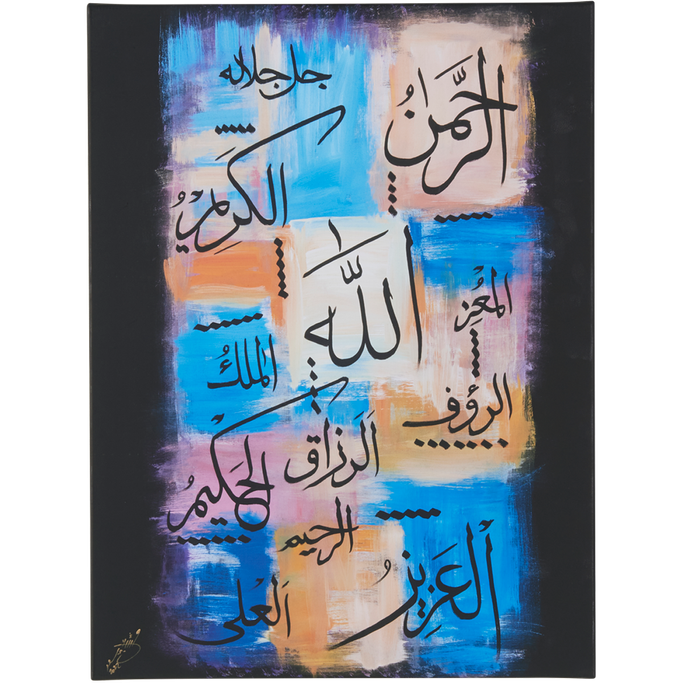 جل جلاله
الرَّحمٰنُ
الكَرِيمُ
اللّٰه
المُعِزُّ
المَلكُ
الرؤف
اَلرزاق
الحَكِيمُ
الرحيم
العَزِيزُ
اَلعلى